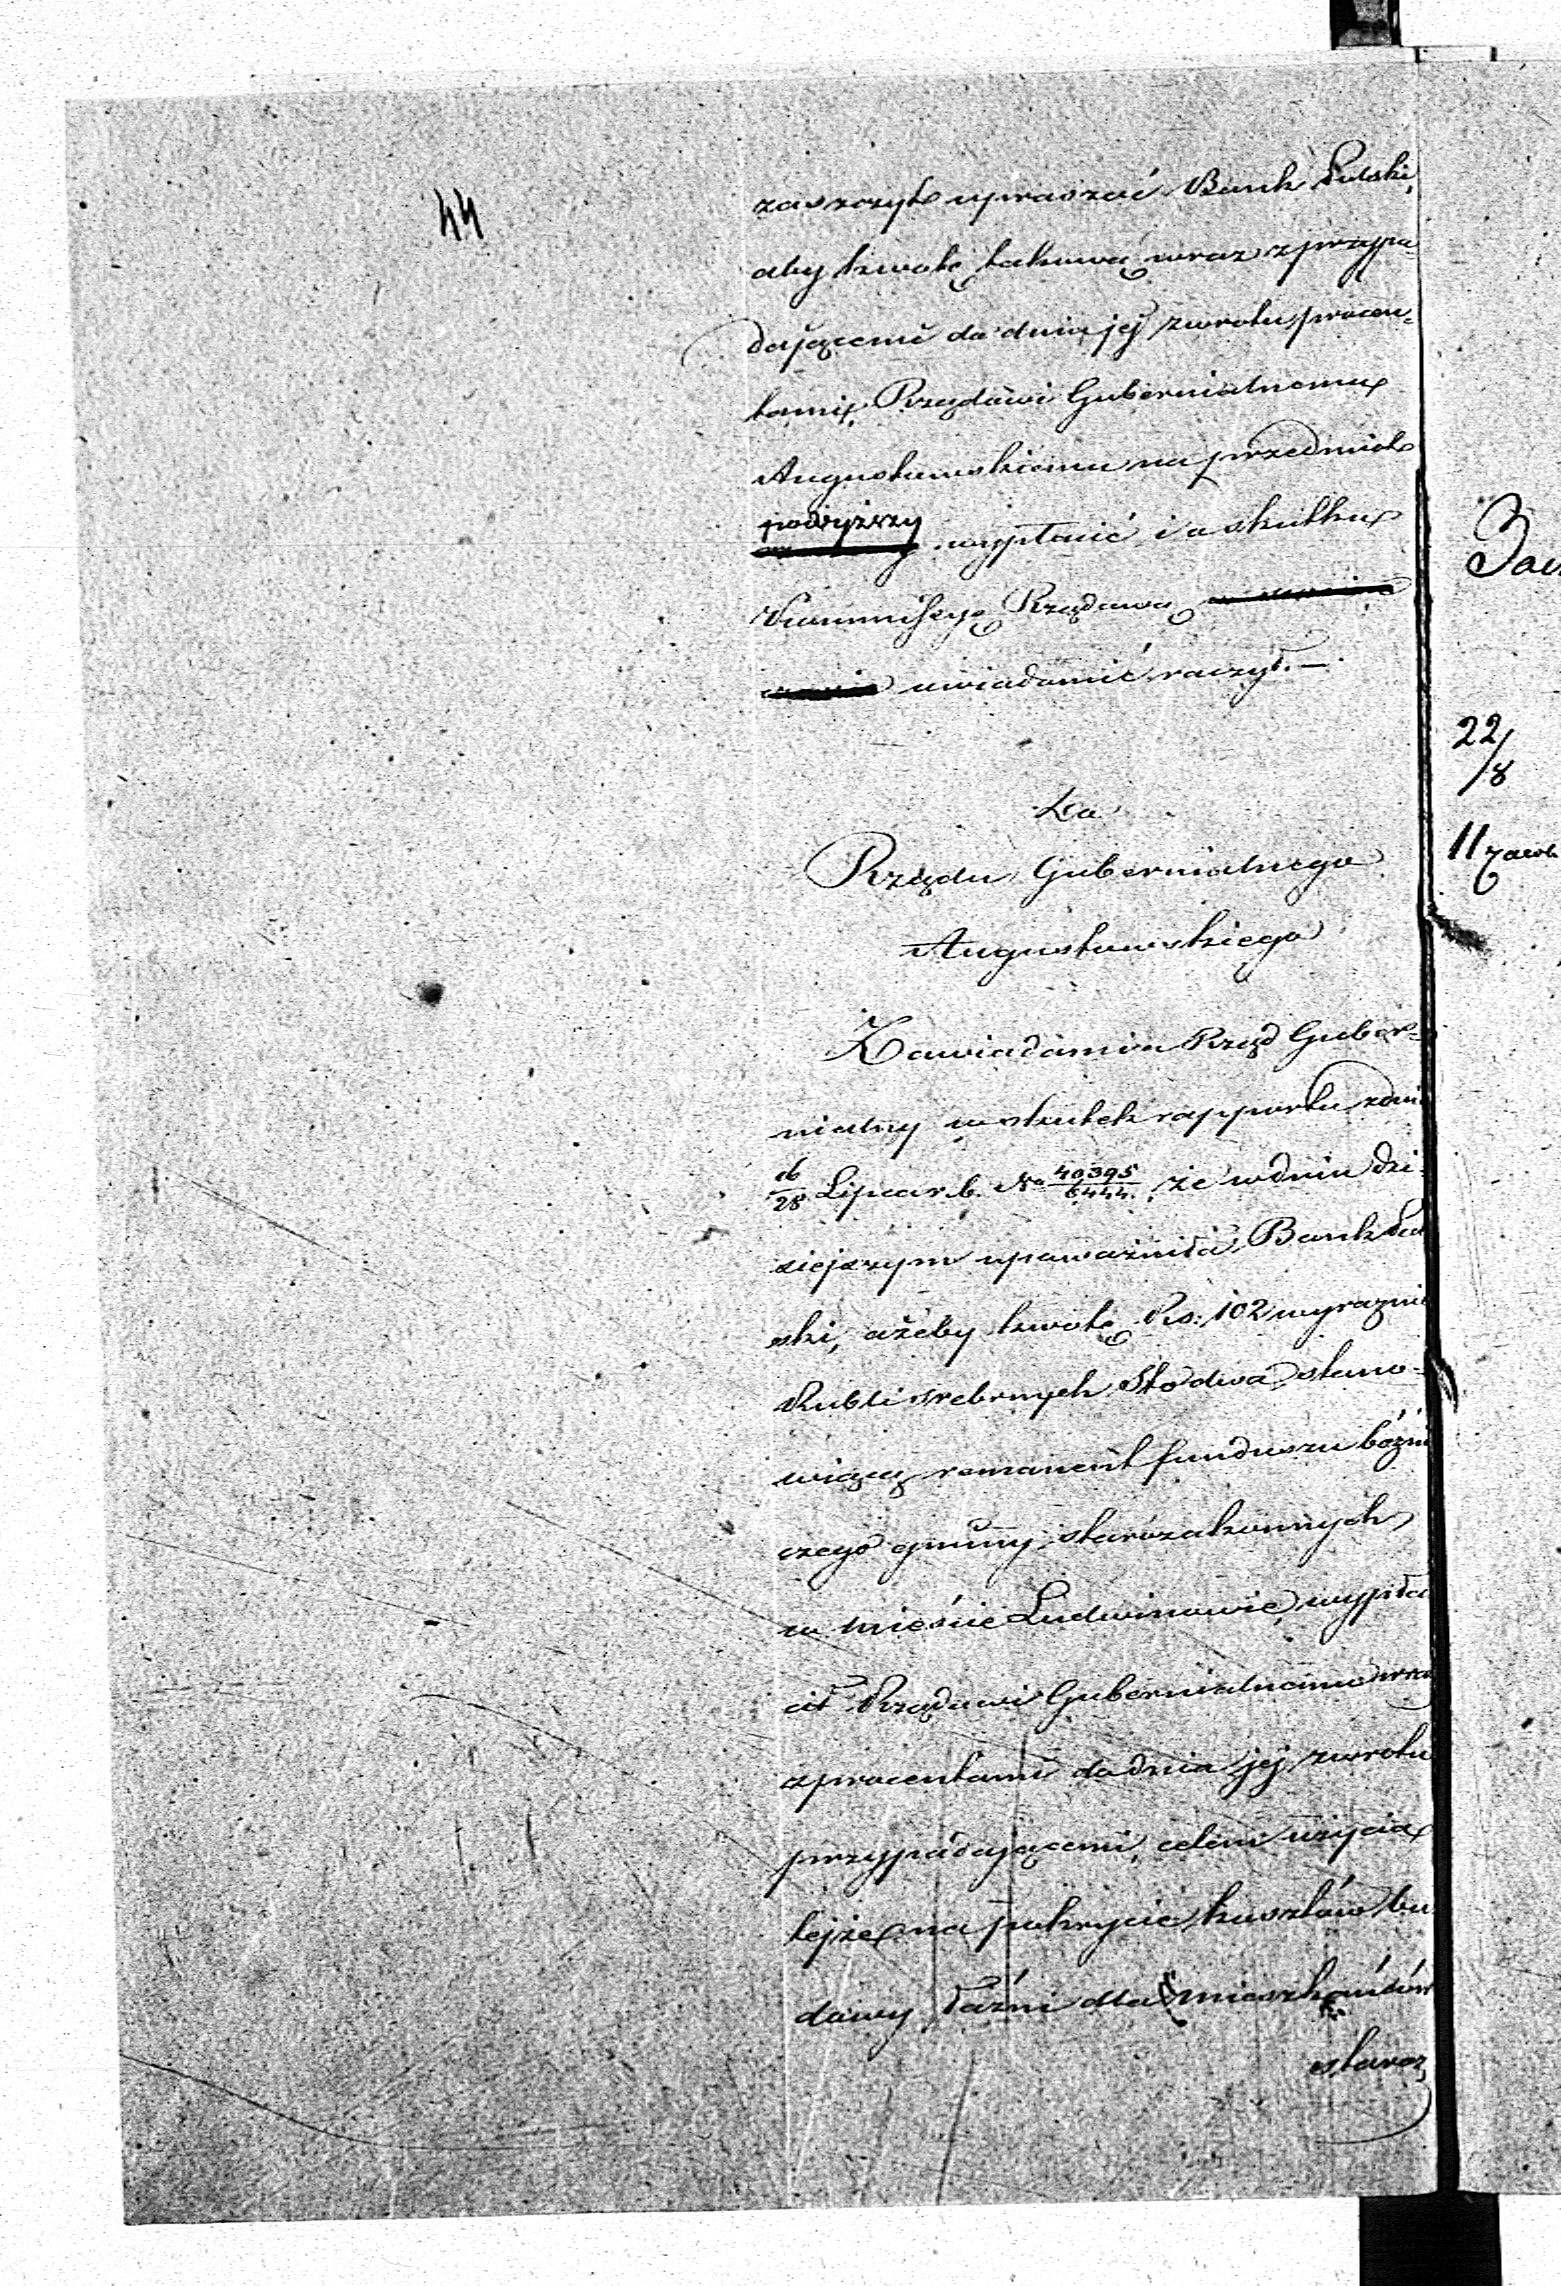 44
zaszczyt upraszać Bank Polski,
aby kwotę takową wraz z przypa-
dającemi do dnia jej zwrotu procen-
tami, Rządowi Gubernialnemu
Augustowskiemu na przedmiot
powyższy wypłacić i o skutku
Kommissyę Rządową
uwiadomić raczył. —
Do
Rządu Gubernialnego
Augustowskiego
Zawiadamia Rząd Guber-
nialny w skutek rapportu z dnia
16/28 Lipca r. b. No 40395/6444. że w dniu dzi-
siejszym upoważniła Bank Pol
ski, ażeby kwotę Rs: 102 wyraźnie
Rubli srebrnych Sto dwa stano-
wiącą remanent funduszu bóźni
czego gminy starozakonnych
w mieście Ludwinowie, wypła
cił Rządowi Gubernialnemu wraz
z procentami do dnia jej zwrotu
przypadającemi, celem użycia
tejże na pokrycie kosztów bu
dowy łaźni dla mieszkańców
staroz
22/8
11